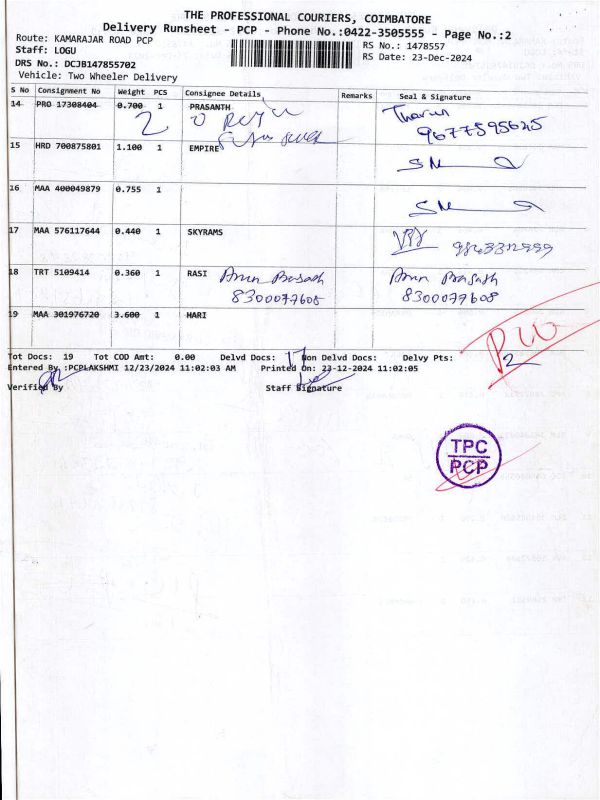 THE PROFESSIONAL COURIERS, COIMBATORE
Delivery Runsheet - PCP - Phone No.:0422-3505555 - Page No.:2
Route: KAMARAJAR ROAD PCP
RS No.: 1478557
Staff: LOGU
RS Date: 23-Dec-2024
DRS No.: DCJB147855702
Vehicle: Two Wheeler Delivery
S No Consignment No Weight PCS Consignee Details Remarks Seal & Signature
14 PRO 17308404 0.700 1 PRASANTH Tharun
2
9677595625
15 HRD 700875801 1.100 1 EMPIRE
16 MAA 400049879 0.755 1
17 MAA 576117644 0.440 1 SKYRAMS
18 TRT 5109414 0.360 1 RASI Arun Prasath Arun Prasath
8300077608 8300079608
19 MAA 301976720 3.600 1 HARI
Tot Docs: 19 Tot COD Amt: 0.00 Delvd Docs: 17 Non Delvd Docs: 2 Delvy Pts:
Entered By :PCPLAKSHMI 12/23/2024 11:02:03 AM Printed On: 23-12-2024 11:02:05
Verified By Staff Signature
TPC
PCP